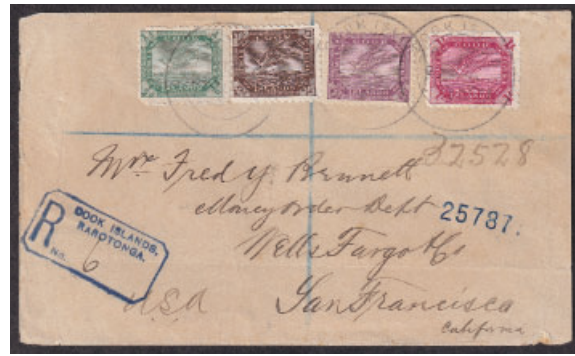 COOK ISLANDS
32528
Mr Fred Y. Bennett
Money Order Dept
25787.
Wells Fargo & Co
San Francisco
California
USA
R
COOK ISLANDS.
RAROTONGA.
No. 6